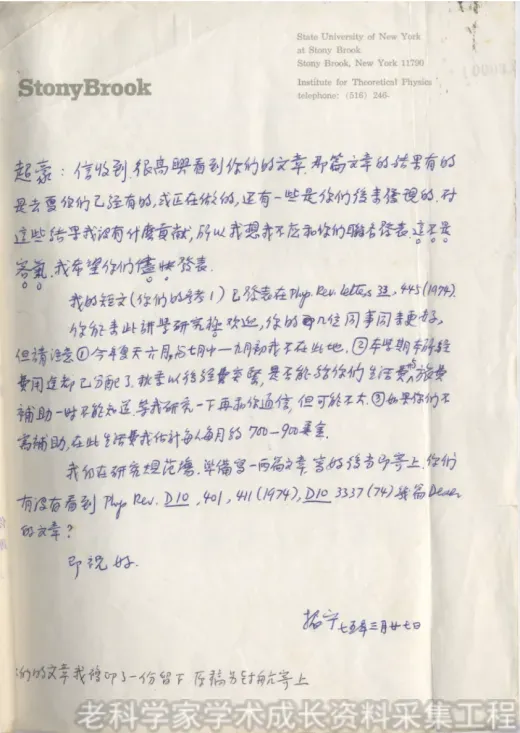 StonyBrook
State University of New York
at Stony Brook
Stony Brook, New York 11790
Institute for Theoretical Physics
telephone: (516) 246-
起豪：信收到.很高興看到你们的文章.那篇文章的结果有的
是去夏你们已经有的,或正在做的,还有一些是你们後来發現的.对
这些结果我没有什麼贡献,所以我想我不应和你们联名發表.这不是
客氣.我希望你们儘快發表.
我的短文(你们的参考1)已發表在Phys. Rev. Letters 33, 445 (1974).
你能来此讲學研究極欢迎,你的那几位同事同来更好,
但請注意①今年夏天六月,与七月中一九月初我不在此地.②本學期本所经
费用途都已分配了.秋季以後经费奇緊,是否能给你们生活费与旅费
補助一时不能知道.等我研究一下再和你通信,但可能不大.③如果你们不
需補助,在此生活费我估計每人每月约700-900美金.
我们在研究规范塲.準備寫一两篇文章.寫好後當即寄上.你们
有没有看到Phys Rev. D10, 401, 411 (1974), D10 3337 (74)幾篇Deser
的文章?
即祝 好.
振宁
七五年三月廿七日
们的文章我複印了一份留下 原稿另封航寄上
老科学家学术成长资料采集工程